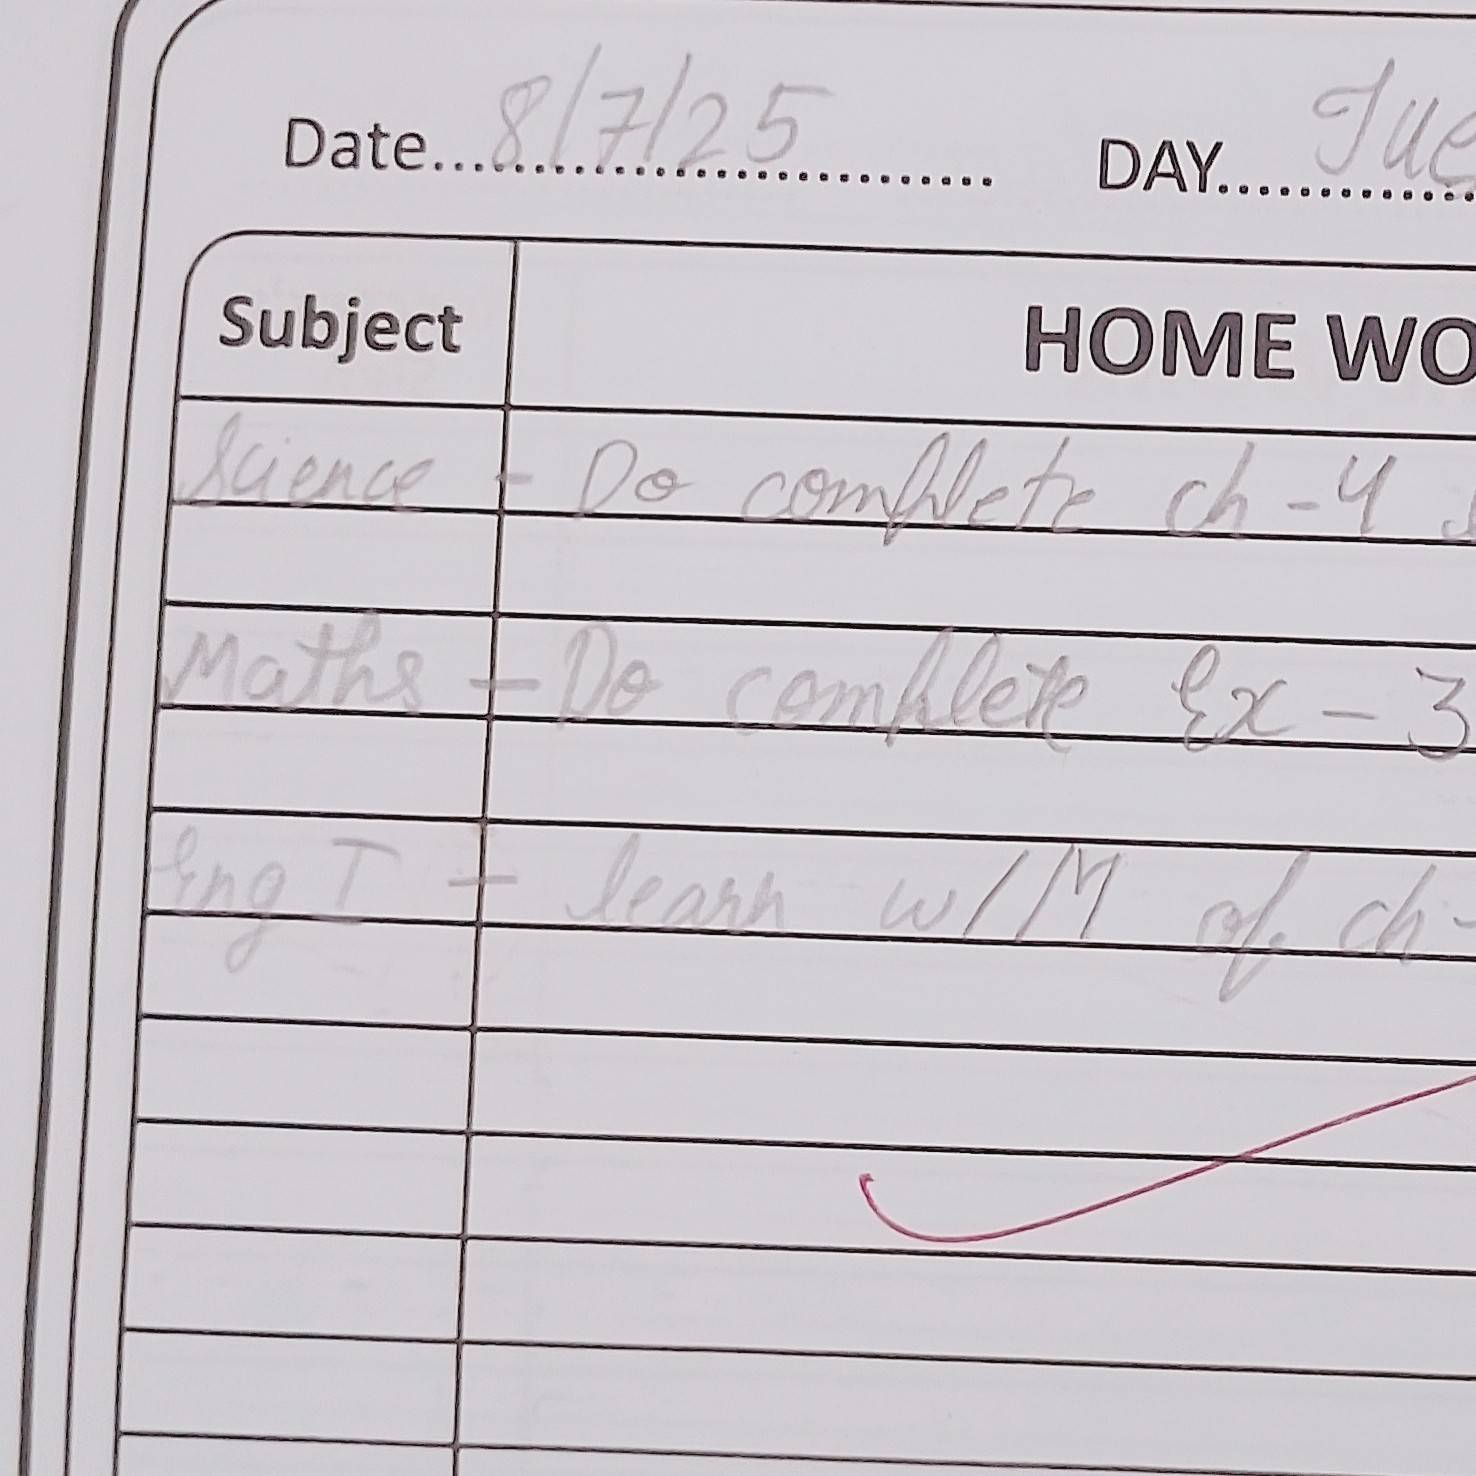 Date... 8/7/25 DAY... Tue
Subject HOME WO
Science - Do complete ch-4
Maths - Do complete Ex - 3
Eng I - learn w/M of ch-